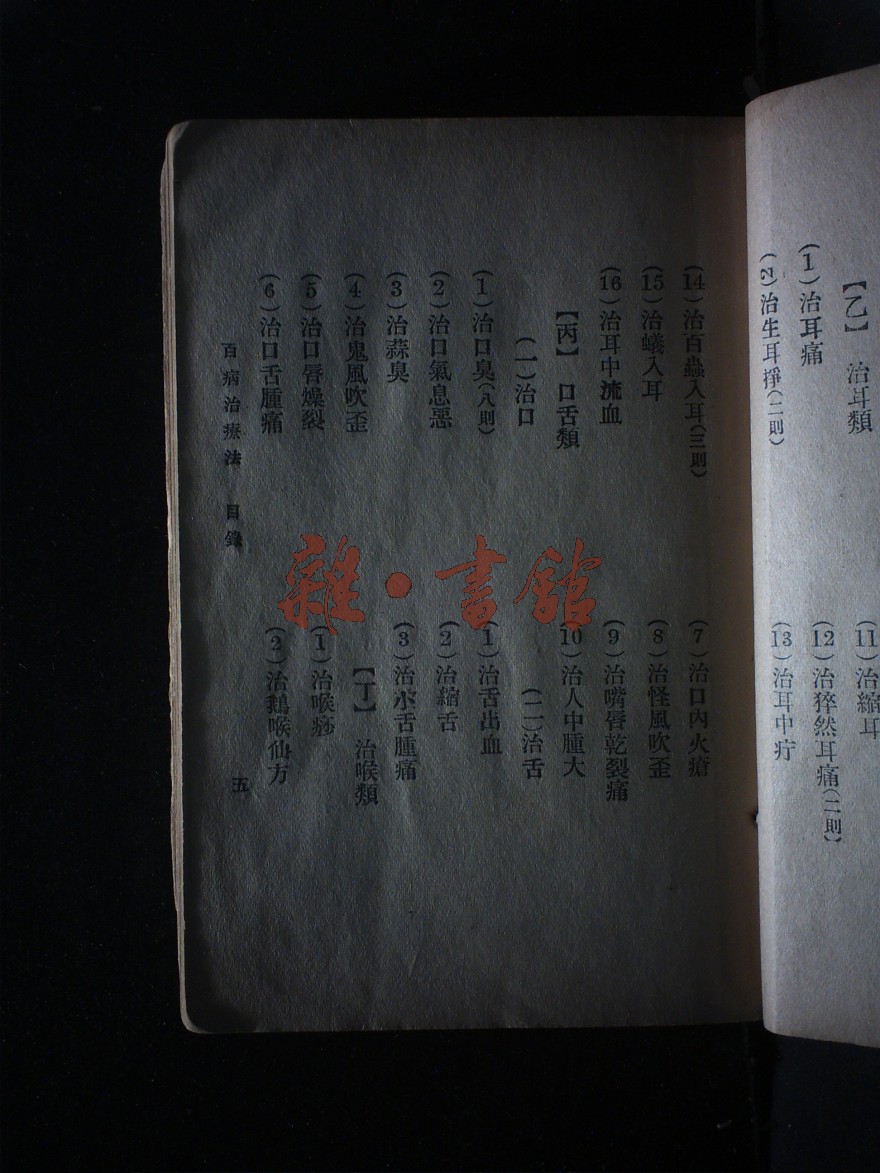 【乙】 治耳類
(1)治耳痛
(2)治生耳掙(二則)
(11)治縮耳
(12)治猝然耳痛(二則)
(13)治耳中疔
(14)治百蟲入耳(三則)
(15)治蟻入耳
(16)治耳中流血
【丙】 口舌類
(一)治口
(1)治口臭(八則)
(2)治口氣息惡
(3)治蒜臭
(4)治鬼風吹歪
(5)治口唇燥裂
(6)治口舌腫痛
(7)治口內火瘡
(8)治怪風吹歪
(9)治嘴唇乾裂痛
(10)治人中腫大
(二)治舌
(1)治舌出血
(2)治縮舌
(3)治水舌腫痛
【丁】 治喉類
(1)治喉痧
(2)治鵝喉仙方
百病治療法 目錄
五
雜·書館